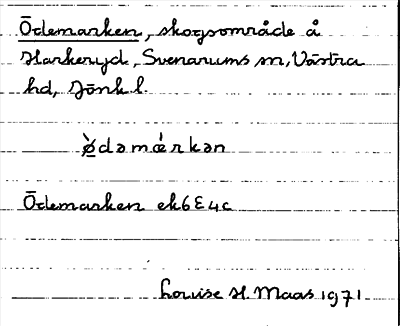 Ödemarken, skogsområde å
Harkeryd, Svenarums sn, Västra
hd, Jönk l.
ø̀dəmœ́rkən
Ödemarken ek6E4c
Louise H. Maas 1971